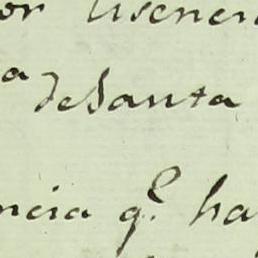 or lisenci
a de Santa
ncia q.e ha